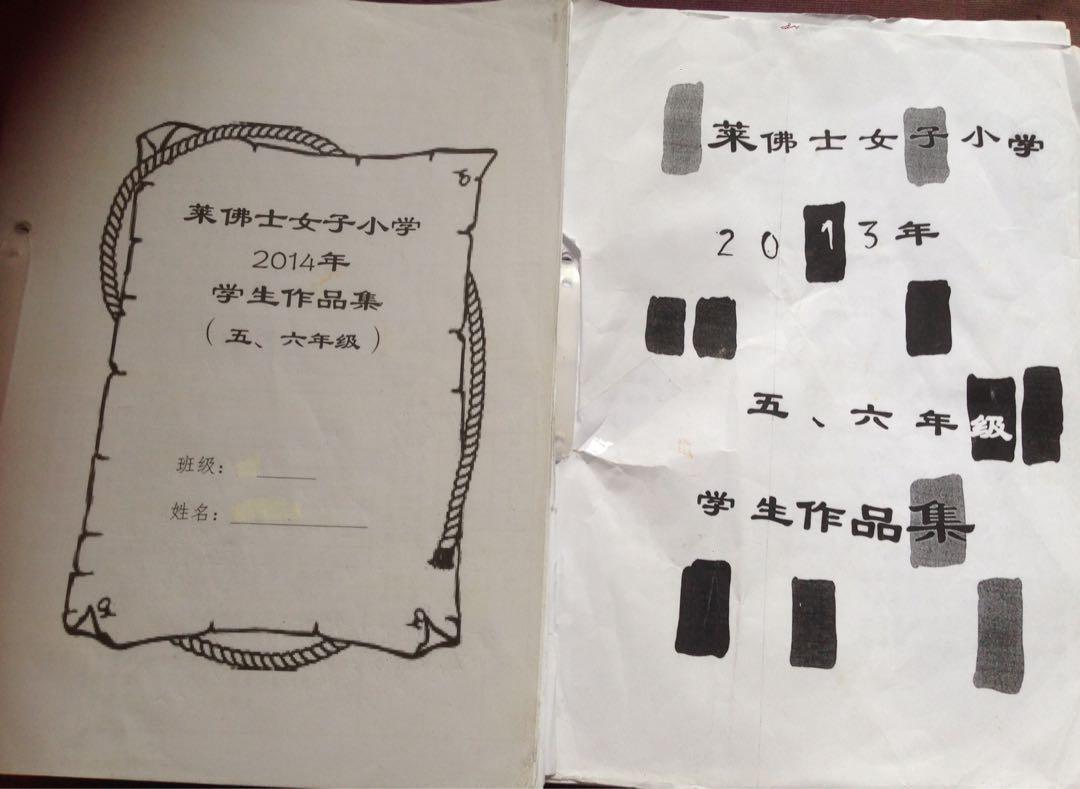 莱佛士女子小学
2014年
学生作品集
（五、六年级）
班级：
姓名：
莱佛士女子小学
2013年
五、六年级
学生作品集